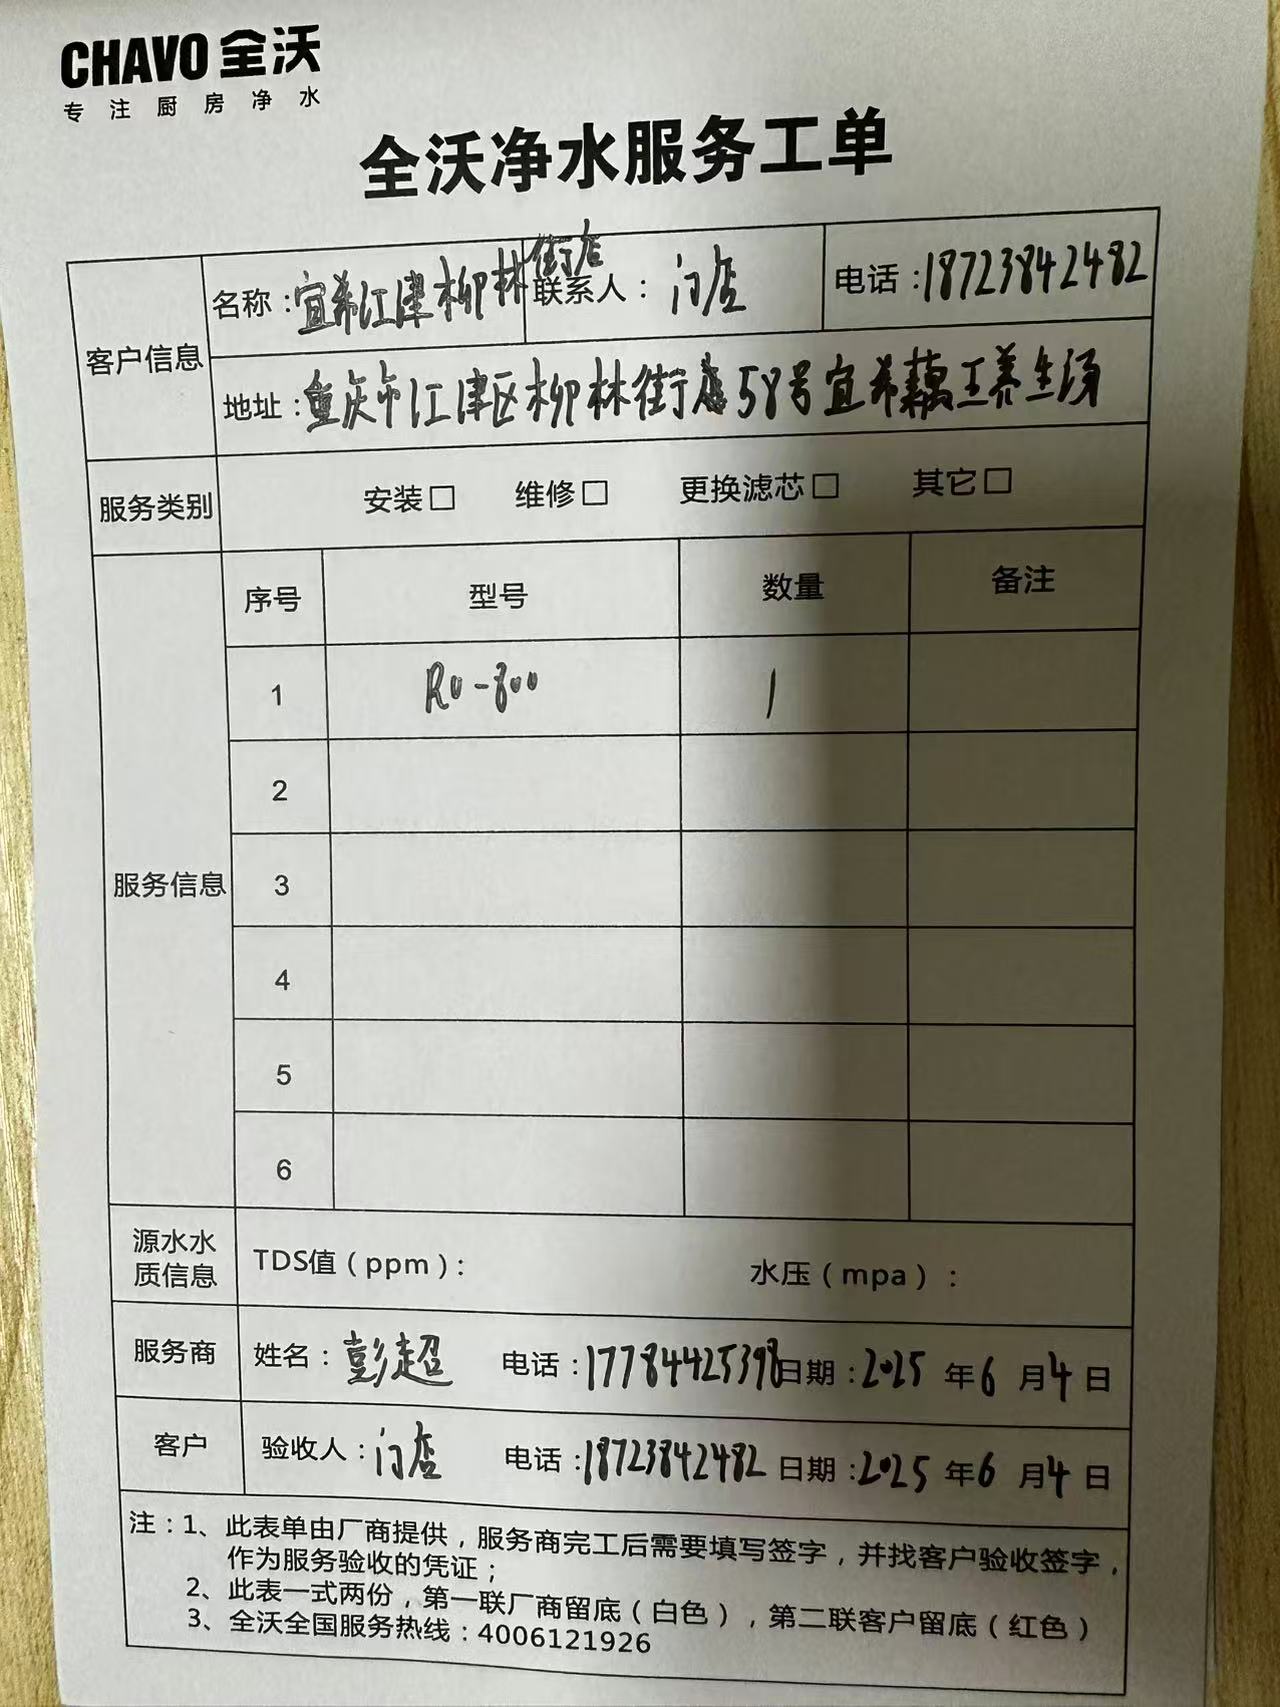 CHAVO 全沃
专注厨房净水
全沃净水服务工单
客户信息
名称：宜希江津柳林街店 联系人：门店 电话：18723842482
地址：重庆市江津区柳林街58号宜希藕王养生汤
服务类别 安装□ 维修□ 更换滤芯□ 其它□
服务信息
序号 型号 数量 备注
1 RO-800 1
2
3
4
5
6
源水水质信息 TDS值（ppm）： 水压（mpa）：
服务商 姓名：彭超 电话：17784425398 日期：2025年6月4日
客户 验收人：门店 电话：18723842482 日期：2025年6月4日
注：1、此表单由厂商提供，服务商完工后需要填写签字，并找客户验收签字，
作为服务验收的凭证；
2、此表一式两份，第一联厂商留底（白色），第二联客户留底（红色）
3、全沃全国服务热线：4006121926